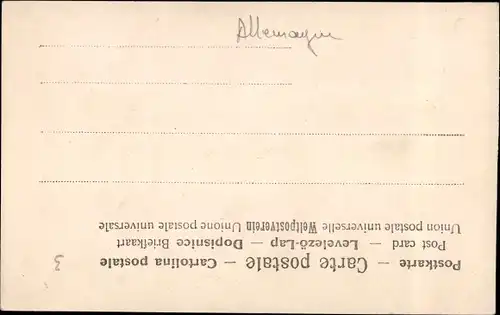 Allemagne
Postkarte — Carte postale — Cartolina postale
Post card — Levelező-Lap — Dopisnice Briefkaart
Union postale universelle Weltpostverein Unione postale universale
3